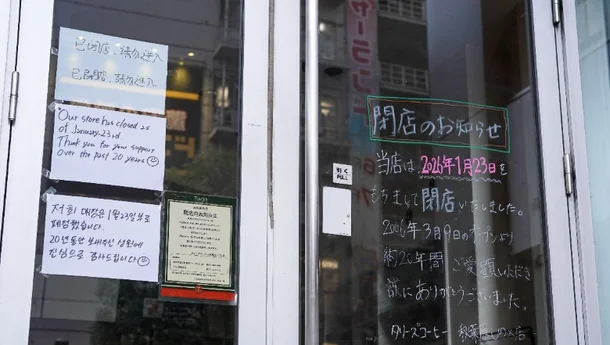 已闭店、请勿进入
已闭店、請勿進入
Our store has closed as
of January.23rd
Thank you for your support
over the past 20 years
저희 매장은 1월23일부로
폐점했습니다.
20년동안 보내주신 성원에
진심으로 감사드립니다
引く
PULL
閉店のお知らせ
当店は、2026年1月23日を
もちまして閉店いたしました。
2006年3月9日のオープンより
約20年間ご愛顧いただき
誠にありがとうございました。
タリーズコーヒー